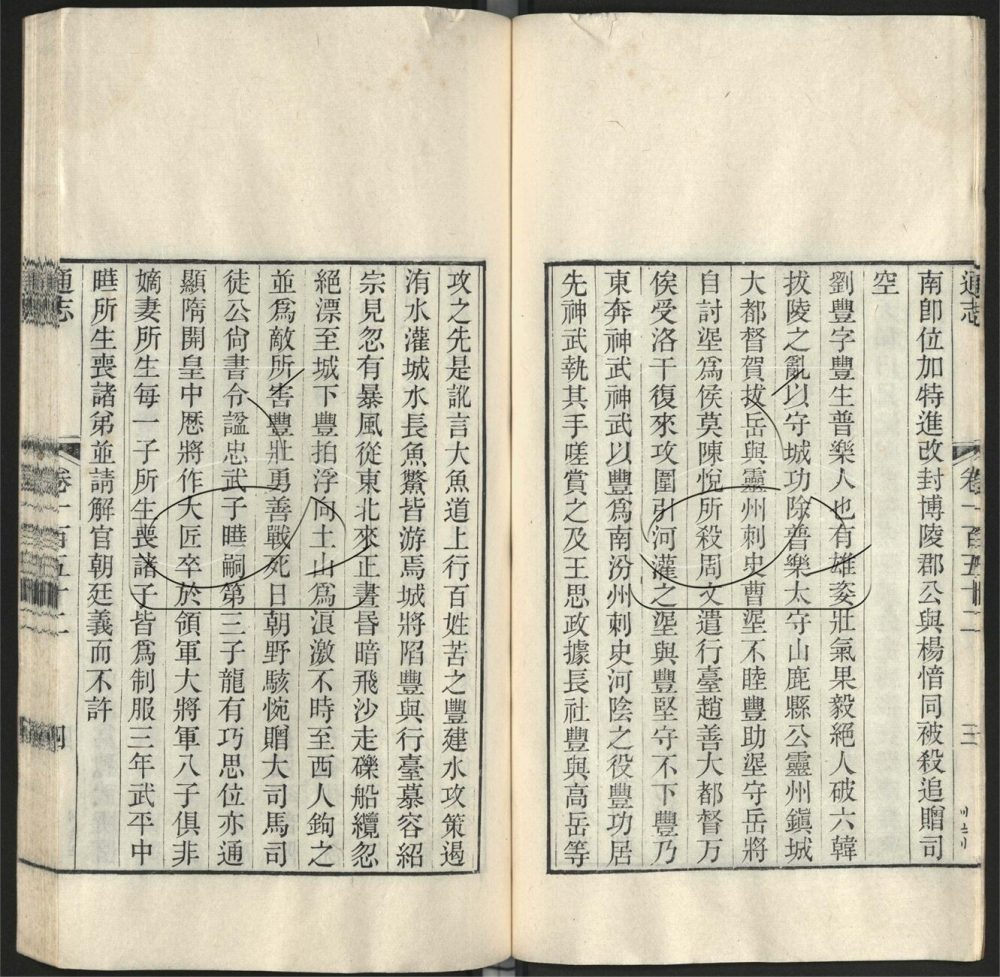 通志
卷一百五十二
三
南卽位加特進改封博陵郡公與楊愔同被殺追贈司
空
劉豐字豐生普樂人也有雄姿壯氣果毅絕人破六韓
拔陵之亂以守城功除普樂太守山鹿縣公靈州鎮城
大都督賀拔岳與靈州刺史曹埿不睦豐助埿守岳將
自討埿爲侯莫陳悅所殺周文遣行臺趙善大都督万
俟受洛干復來攻圍引河灌之埿與豐堅守不下豐乃
東奔神武神武以豐爲南汾州刺史河陰之役豐功居
先神武執其手嗟賞之及王思政據長社豐與高岳等
攻之先是訛言大魚道上行百姓苦之豐建水攻策遏
洧水灌城水長魚鱉皆游焉城將陷豐與行臺慕容紹
宗見忽有暴風從東北來正晝昏暗飛沙走礫船纜忽
絕漂至城下豐拍浮向土山爲浪激不時至西人鉤之
並爲敵所害豐壯勇善戰死日朝野駭惋贈大司馬司
徒公尙書令諡忠武子㬙嗣第三子龍有巧思位亦通
顯隋開皇中歷將作大匠卒於領軍大將軍八子俱非
嫡妻所生每一子所生喪諸子皆爲制服三年武平中
㬙所生喪諸弟並請解官朝廷義而不許
通志
卷一百五十二
四